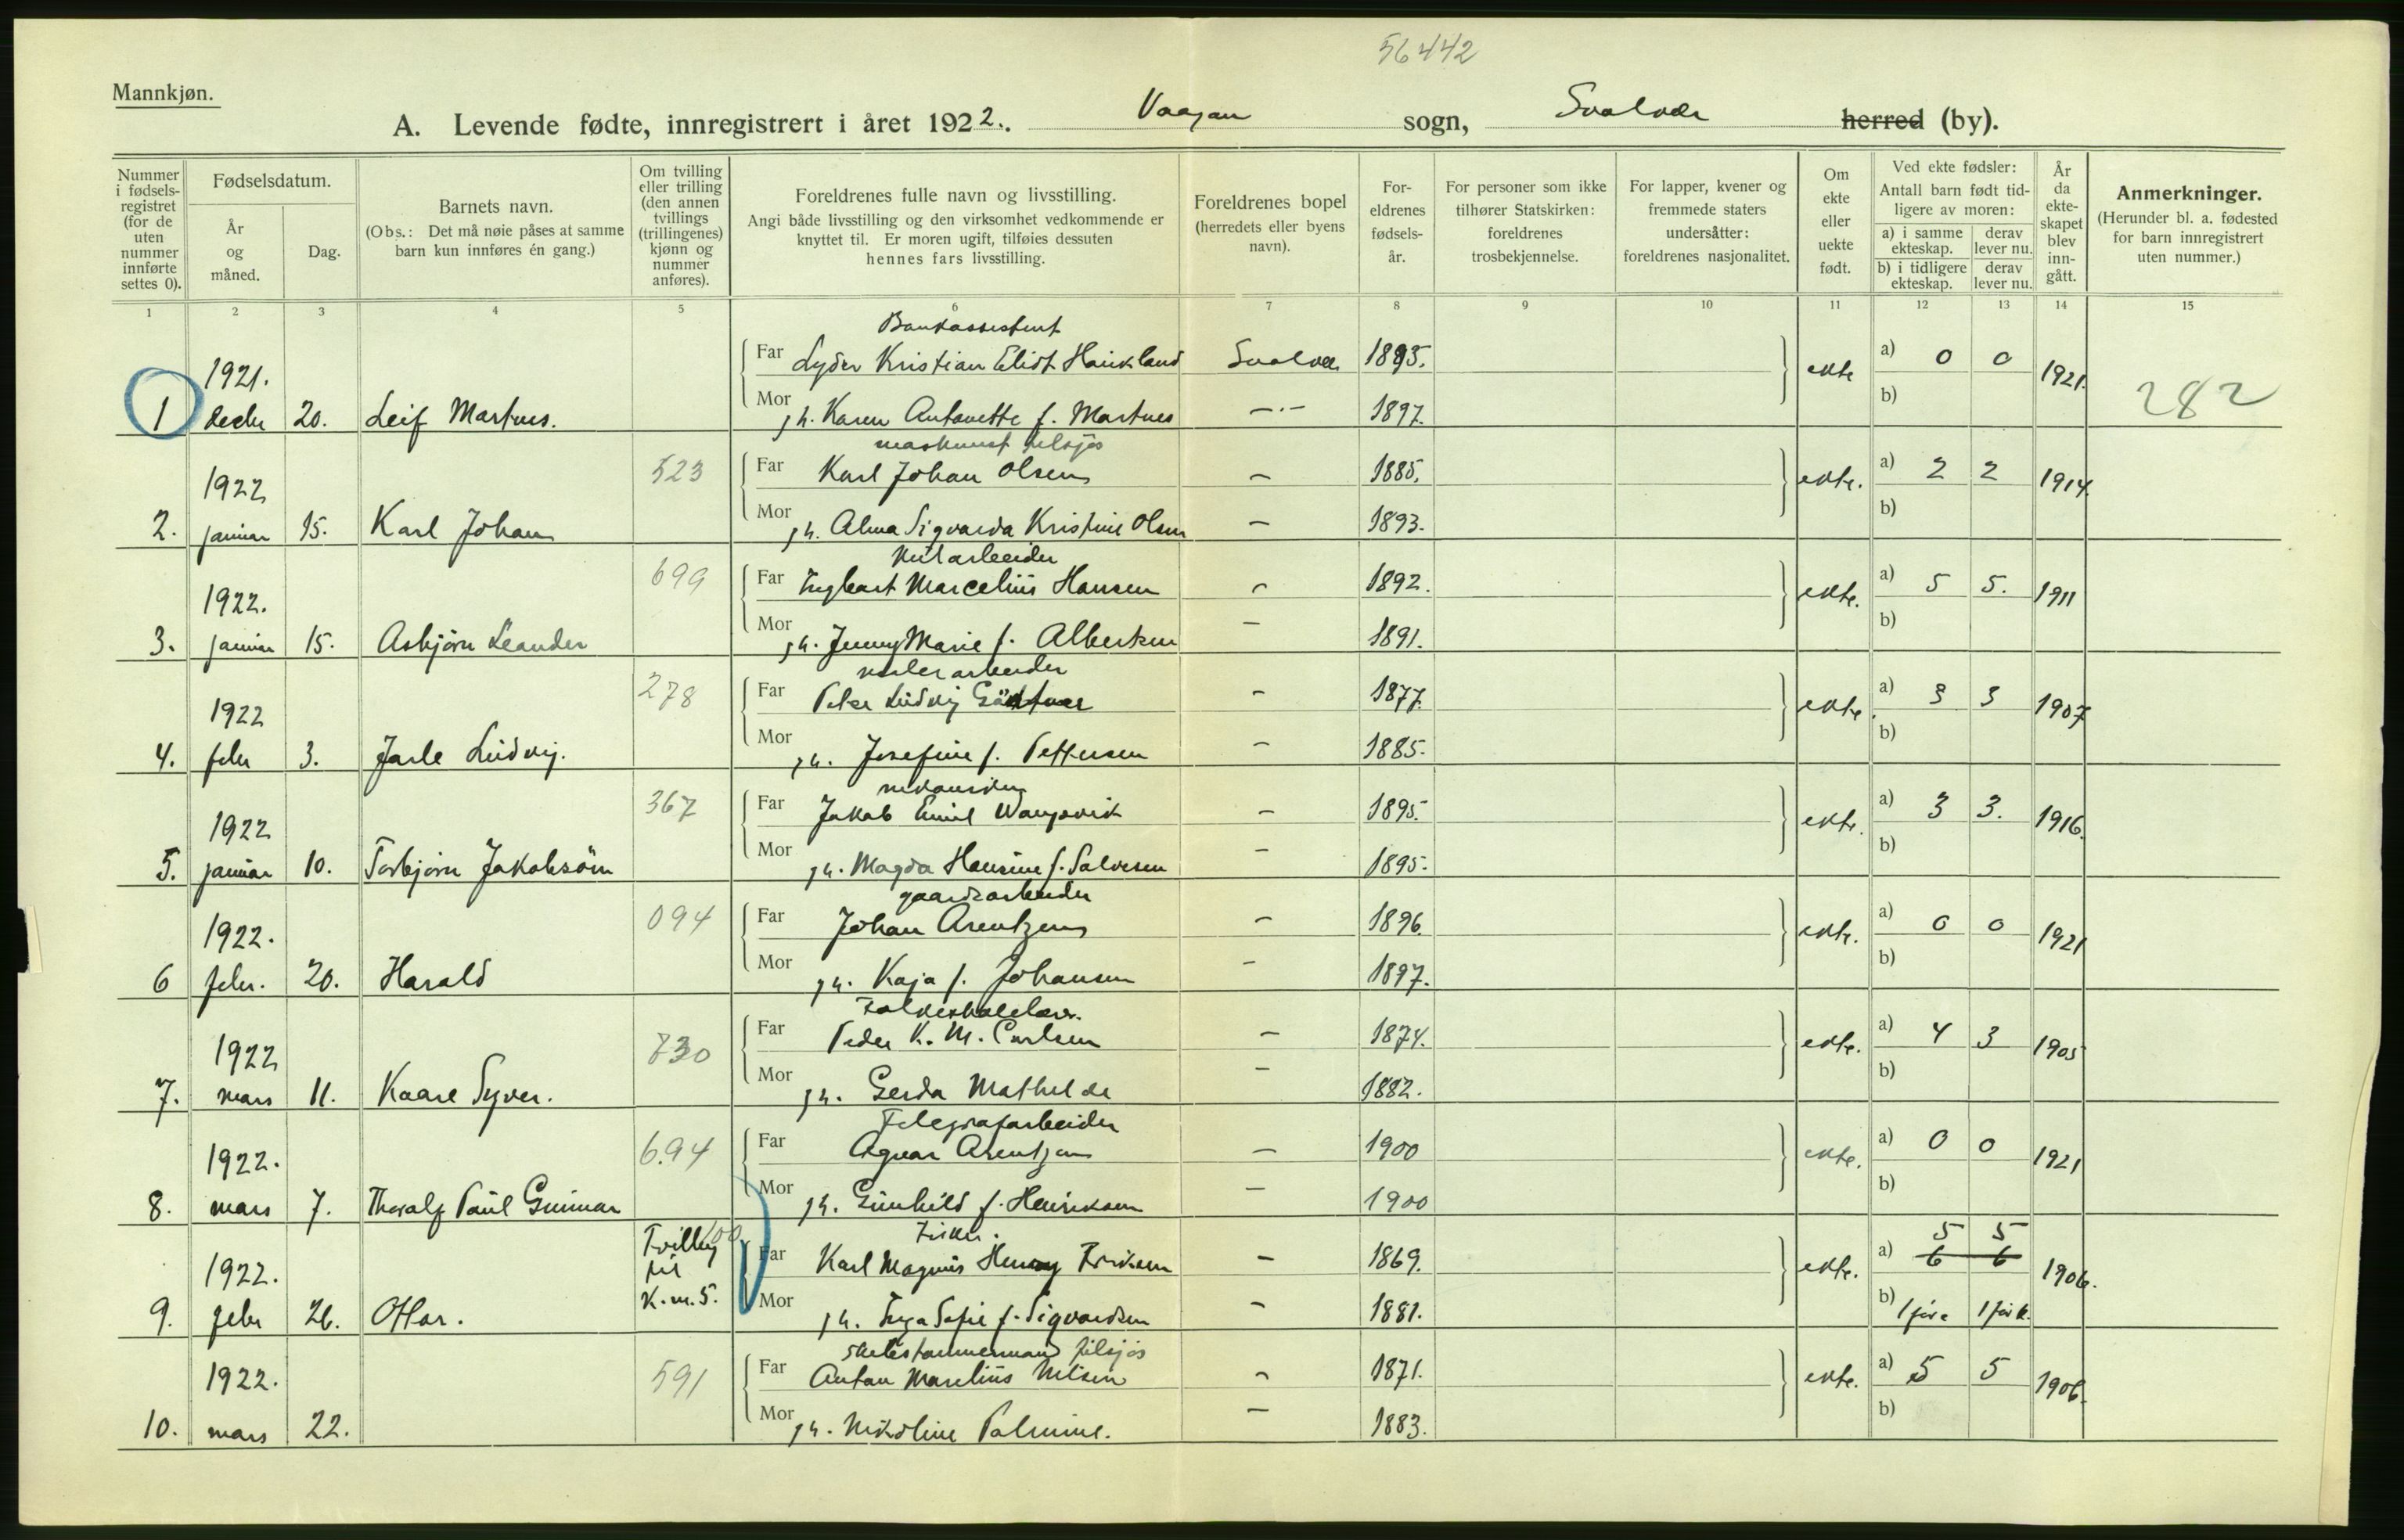 56442
Mannkjøn.
A. Levende fødte, innregistrert i året 1922. Vaagan sogn, Svolvær herred (by).
Nummer i fødsels-registret (for de uten nummer innførte settes 0).
Fødselsdatum.
År og måned.
Dag.
Barnets navn.
(Obs.: Det må nøie påses at samme barn kun innføres én gang.)
Om tvilling eller trilling (den annen tvillings (trillingenes) kjønn og nummer anføres).
Foreldrenes fulle navn og livsstilling.
Angi både livsstilling og den virksomhet vedkommende er knyttet til. Er moren ugift, tilføies dessuten hennes fars livsstilling.
Foreldrenes bopel (herredets eller byens navn).
For-eldrenes fødsels-år.
For personer som ikke tilhører Statskirken: foreldrenes trosbekjennelse.
For lapper, kvener og fremmede staters undersåtter: foreldrenes nasjonalitet.
Om ekte eller uekte født.
Ved ekte fødsler:
Antall barn født tid-ligere av moren:
a) i samme ekteskap. derav lever nu.
b) i tidligere ekteskap. derav lever nu.
År da ekte-skapet blev inn-gått.
Anmerkninger.
(Herunder bl. a. fødested for barn innregistrert uten nummer.)
1 2 3 4 5 6 7 8 9 10 11 12 13 14 15
Bankassistent
1921. Far Lyder Kristian Elidt Haukland Svolvær 1895. ekte a) 0 0 1921. 282
1 decbr 20. Leif Martnes. Mor h. Karen Antonette f. Martnes —·— 1897. b)
maskinist tilsjøs
1922 523 Far Karl Johan Olsen — 1885. ekte. a) 2 2 1914.
2. januar 15. Karl Johan Mor h. Alma Sigvarda Kristine Olsen — 1893. b)
1922. 699 Far Ingbart Marcelius Hansen — 1892. ekte. a) 5 5. 1911
3. januar 15. Asbjørn Leander Mor h. Jenny Marie f. Albertsen — 1891. b)
1922 278 Far Peter Ludvig — 1877. ekte. a) 3 3 1907
4. febr 3. Jarle Ludvig. Mor h. Josefine f. Pettersen — 1885. b)
1922 367 Far Jakob Emil Wangsvik — 1895. ekte. a) 3 3. 1916.
5. januar 10. Torbjørn Jakobsön Mor h. Magda Hansine f. Salvesen — 1895. b)
gaardsarbeider
1922. 094 Far Johan Arentzen — 1896. ekte. a) 0 0 1921
6 febr. 20. Harald Mor h. Kaja f. Johansen — 1897. b)
Folkeskolelær.
1922 730 Far Peder K. M. Carlsen — 1874. ekte. a) 4 3 1905
7. mars 11. Kaare Syver. Mor h. Gerda Mathilde — 1882. b)
Telegrafarbeider
1922. 694 Far Agnar Arentzen — 1900 ekte. a) 0 0 1921
8. mars 7. Thoralf Paul Gunnar Mor h. Gunhild f. Henriksen — 1900 b)
Fisker.
1922. Tvilling til K. m. 5. Far Karl Magnus Henry Eriksen — 1869. ekte. a) 5 5 6 6 1906.
9. febr 26. Ottar. Mor h. Inga Sofie f. Sigvardsen — 1881. b) 1 før e 1 før e.
skibstømmermand tilsjøs
1922. 591 Far Anton Marelius Nilsen — 1871. ekte. a) 5 5 1906.
10. mars 22. Mor h. Nikoline Palmine. — 1883. b)